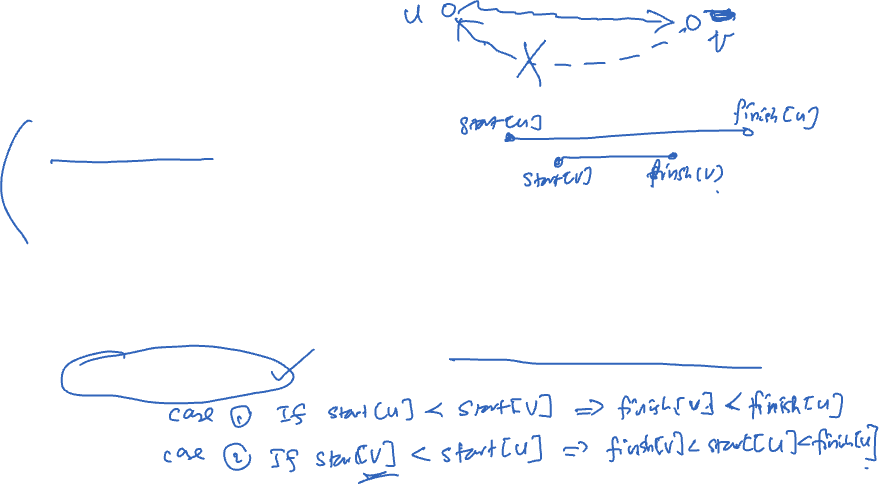 u v
start[u] finish[u]
start[v] finish(v)
case ① If start[u] < start[v] => finish[v] < finish[u]
case ② If star[v] < start[u] => finish[v] < start[u] < finish[u]